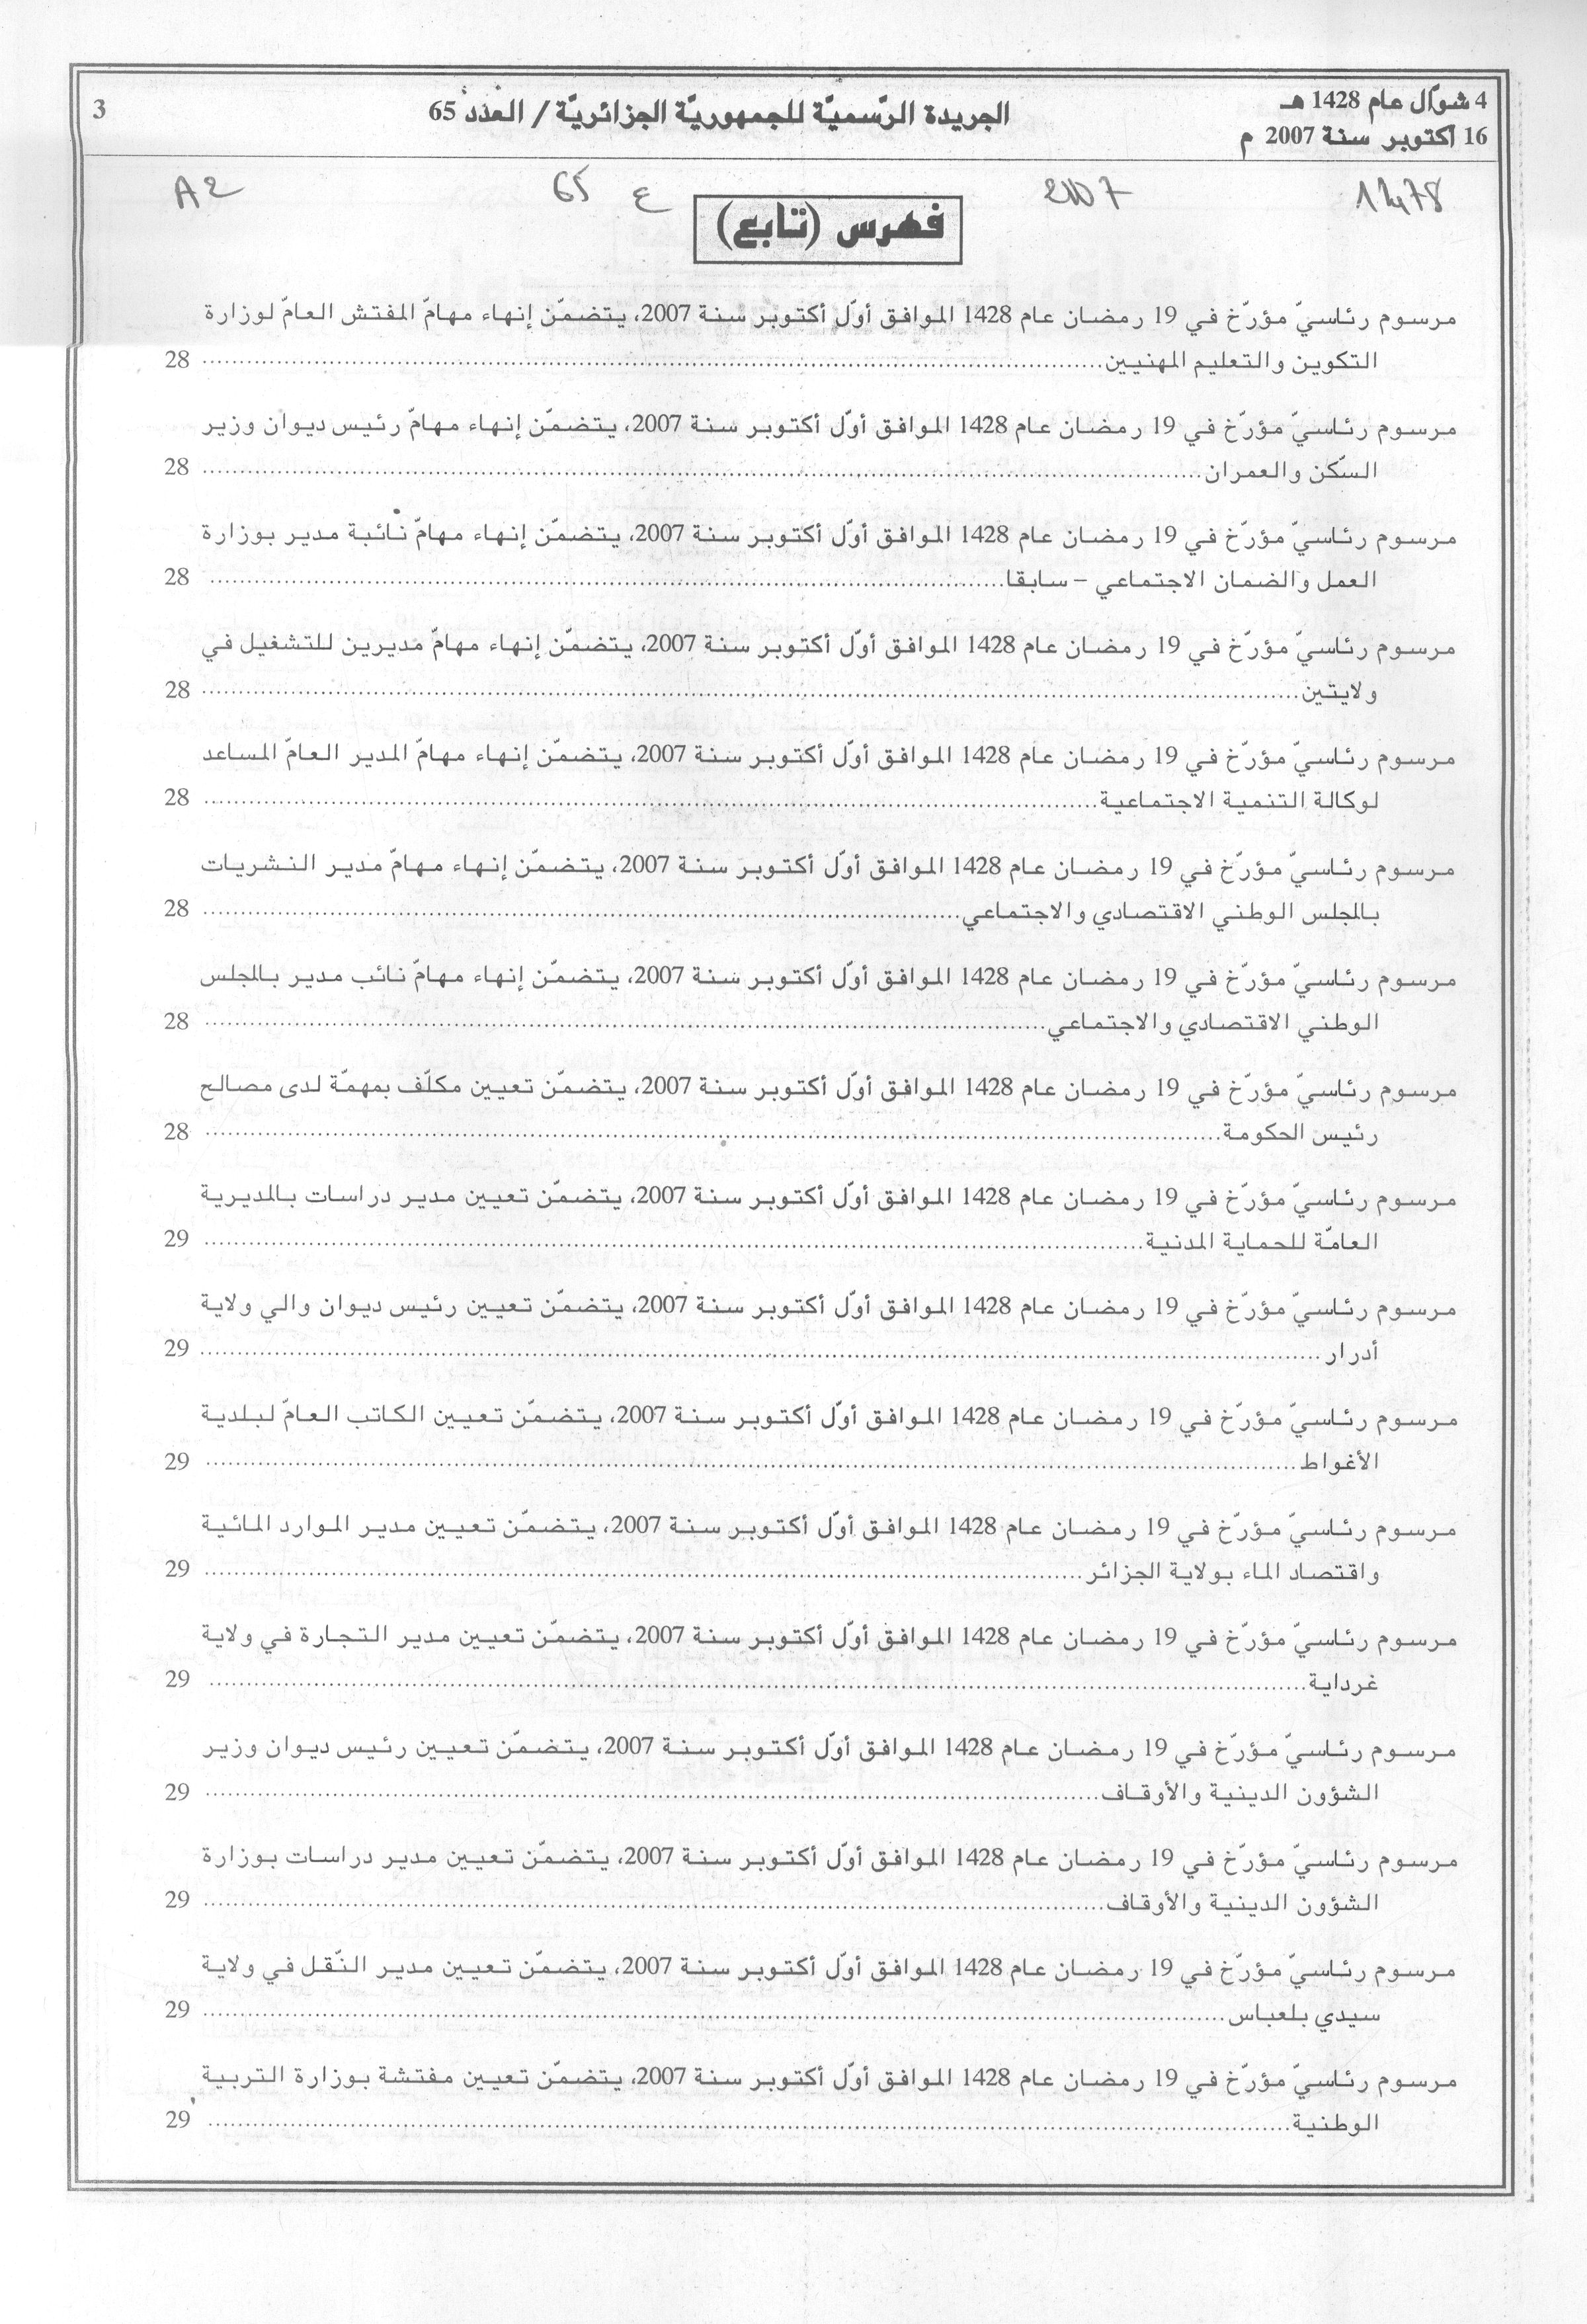 4 شوّال عام 1428 هـ
16 أكتوبر سنة 2007 م
الجريدة الرّسميّة للجمهوريّة الجزائريّة / العدد 65
3
2007
ع 65
A2
فهرس (تابع)
مرسوم رئاسيّ مؤرّخ في 19 رمضان عام 1428 الموافق أوّل أكتوبر سنة 2007، يتضمّن إنهاء مهامّ المفتش العامّ لوزارة
التكوين والتعليم المهنيين........................................ 28
مرسوم رئاسيّ مؤرّخ في 19 رمضان عام 1428 الموافق أوّل أكتوبر سنة 2007، يتضمّن إنهاء مهامّ رئيس ديوان وزير
السّكن والعمران........................................ 28
مرسوم رئاسيّ مؤرّخ في 19 رمضان عام 1428 الموافق أوّل أكتوبر سنة 2007، يتضمّن إنهاء مهامّ نائبة مدير بوزارة
العمل والضمان الاجتماعي – سابقا........................................ 28
مرسوم رئاسيّ مؤرّخ في 19 رمضان عام 1428 الموافق أوّل أكتوبر سنة 2007، يتضمّن إنهاء مهامّ مديرين للتشغيل في
ولايتين........................................ 28
مرسوم رئاسيّ مؤرّخ في 19 رمضان عام 1428 الموافق أوّل أكتوبر سنة 2007، يتضمّن إنهاء مهامّ المدير العامّ المساعد
لوكالة التنمية الاجتماعية........................................ 28
مرسوم رئاسيّ مؤرّخ في 19 رمضان عام 1428 الموافق أوّل أكتوبر سنة 2007، يتضمّن إنهاء مهامّ مدير النشريات
بالمجلس الوطني الاقتصادي والاجتماعي........................................ 28
مرسوم رئاسيّ مؤرّخ في 19 رمضان عام 1428 الموافق أوّل أكتوبر سنة 2007، يتضمّن إنهاء مهامّ نائب مدير بالمجلس
الوطني الاقتصادي والاجتماعي........................................ 28
مرسوم رئاسيّ مؤرّخ في 19 رمضان عام 1428 الموافق أوّل أكتوبر سنة 2007، يتضمّن تعيين مكلّف بمهمّة لدى مصالح
رئيس الحكومة........................................ 28
مرسوم رئاسيّ مؤرّخ في 19 رمضان عام 1428 الموافق أوّل أكتوبر سنة 2007، يتضمّن تعيين مدير دراسات بالمديرية
العامّة للحماية المدنية........................................ 29
مرسوم رئاسيّ مؤرّخ في 19 رمضان عام 1428 الموافق أوّل أكتوبر سنة 2007، يتضمّن تعيين رئيس ديوان والي ولاية
أدرار........................................ 29
مرسوم رئاسيّ مؤرّخ في 19 رمضان عام 1428 الموافق أوّل أكتوبر سنة 2007، يتضمّن تعيين الكاتب العامّ لبلدية
الأغواط........................................ 29
مرسوم رئاسيّ مؤرّخ في 19 رمضان عام 1428 الموافق أوّل أكتوبر سنة 2007، يتضمّن تعيين مدير الموارد المائية
واقتصاد الماء بولاية الجزائر........................................ 29
مرسوم رئاسيّ مؤرّخ في 19 رمضان عام 1428 الموافق أوّل أكتوبر سنة 2007، يتضمّن تعيين مدير التجارة في ولاية
غرداية........................................ 29
مرسوم رئاسيّ مؤرّخ في 19 رمضان عام 1428 الموافق أوّل أكتوبر سنة 2007، يتضمّن تعيين رئيس ديوان وزير
الشؤون الدينية والأوقاف........................................ 29
مرسوم رئاسيّ مؤرّخ في 19 رمضان عام 1428 الموافق أوّل أكتوبر سنة 2007، يتضمّن تعيين مدير دراسات بوزارة
الشؤون الدينية والأوقاف........................................ 29
مرسوم رئاسيّ مؤرّخ في 19 رمضان عام 1428 الموافق أوّل أكتوبر سنة 2007، يتضمّن تعيين مدير النّقل في ولاية
سيدي بلعباس........................................ 29
مرسوم رئاسيّ مؤرّخ في 19 رمضان عام 1428 الموافق أوّل أكتوبر سنة 2007، يتضمّن تعيين مفتشة بوزارة التربية
الوطنية........................................ 29